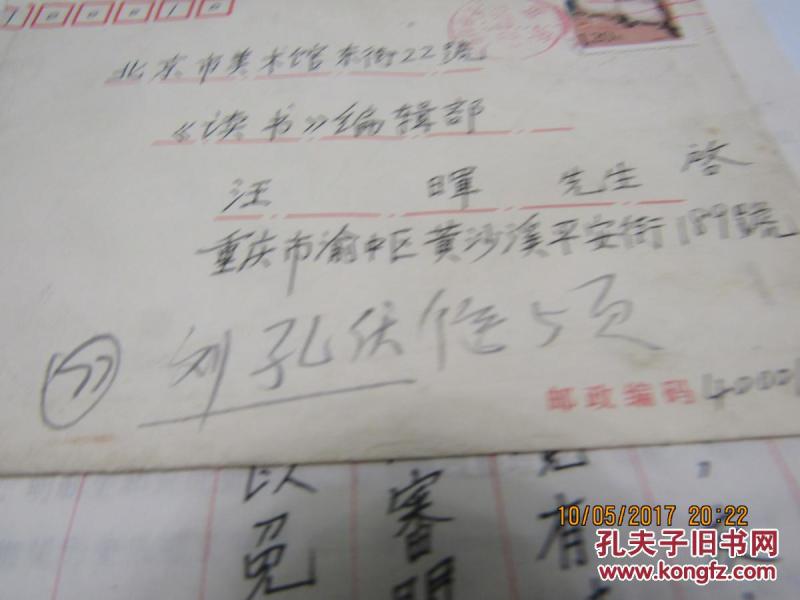 100010
北京市美术馆东街22號
《读书》编辑部
汪 暉 先生 啓
重庆市渝中区黄沙溪平安街189號
刘孔伏信5页
邮政编码 4000
以免
審明
有
10/05/2017 20:22
孔夫子旧书网
www.kongfz.com